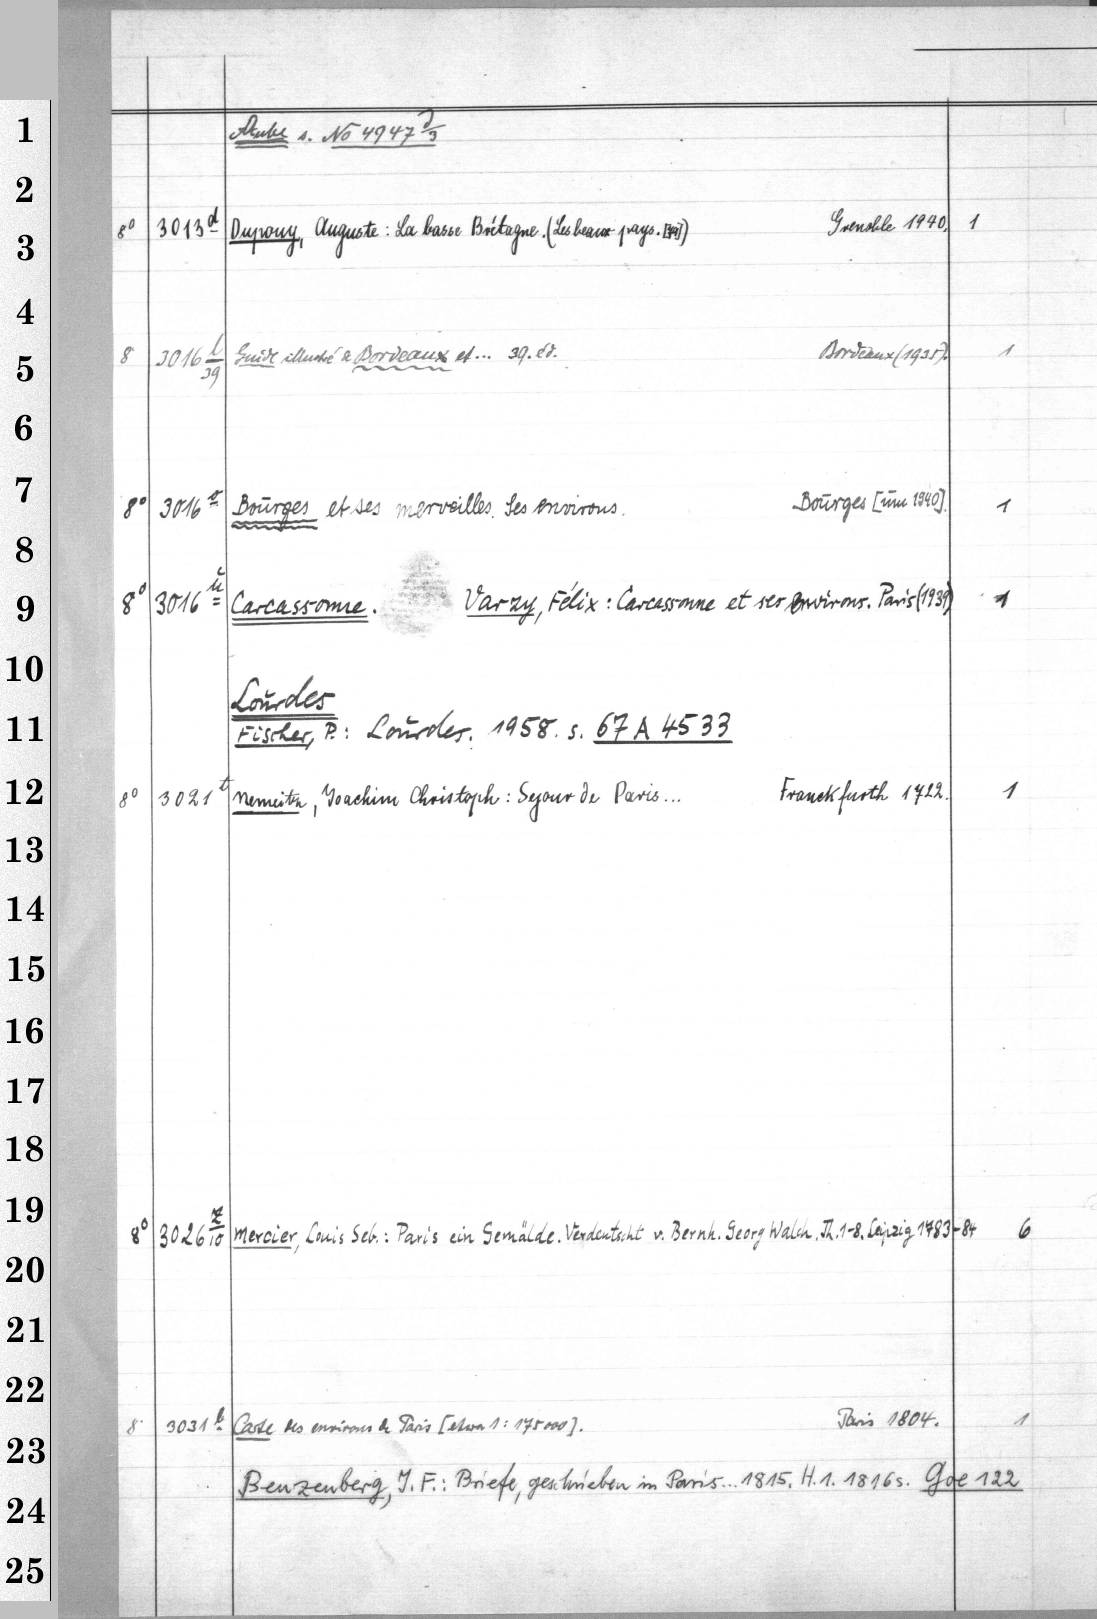 1
Aube s. No 4947 d/3
2
8° 3013 d Dupouy, Auguste: La basse Brétagne. (Les beaux pays.) Grenoble 1940. 1
3
4
8 3016 l/39 Guide illustré a Bordeaux et... 39. éd. Bordeaux (1935). 1
5
6
7
8° 3016 Bourges et ses merveilles. Ses environs. Bourges [um 1940]. 1
8
8° 3016 u Carcassonne. Varzy, Félix: Carcassonne et ses environs. Paris (1939) 1
9
10
Lourdes
11
Fischer, P.: Lourdes. 1958. s. 67 A 4533
12
8° 3021 t Nemeitz, Joachim Christoph: Sejour de Paris... Franckfurth 1722. 1
13
14
15
16
17
18
19
8° 3026 /10 Mercier, Louis Seb.: Paris ein Gemälde. Verdeutscht v. Bernh. Georg Walch. Th. 1-8. Leipzig 1783-84 6
20
21
22
8 3031 b Carte des environs de Paris [etwa 1:175000]. Paris 1804. 1
23
Benzenberg, J. F.: Briefe, geschrieben in Paris... 1815. H. 1. 1816 s. Goe 122
24
25